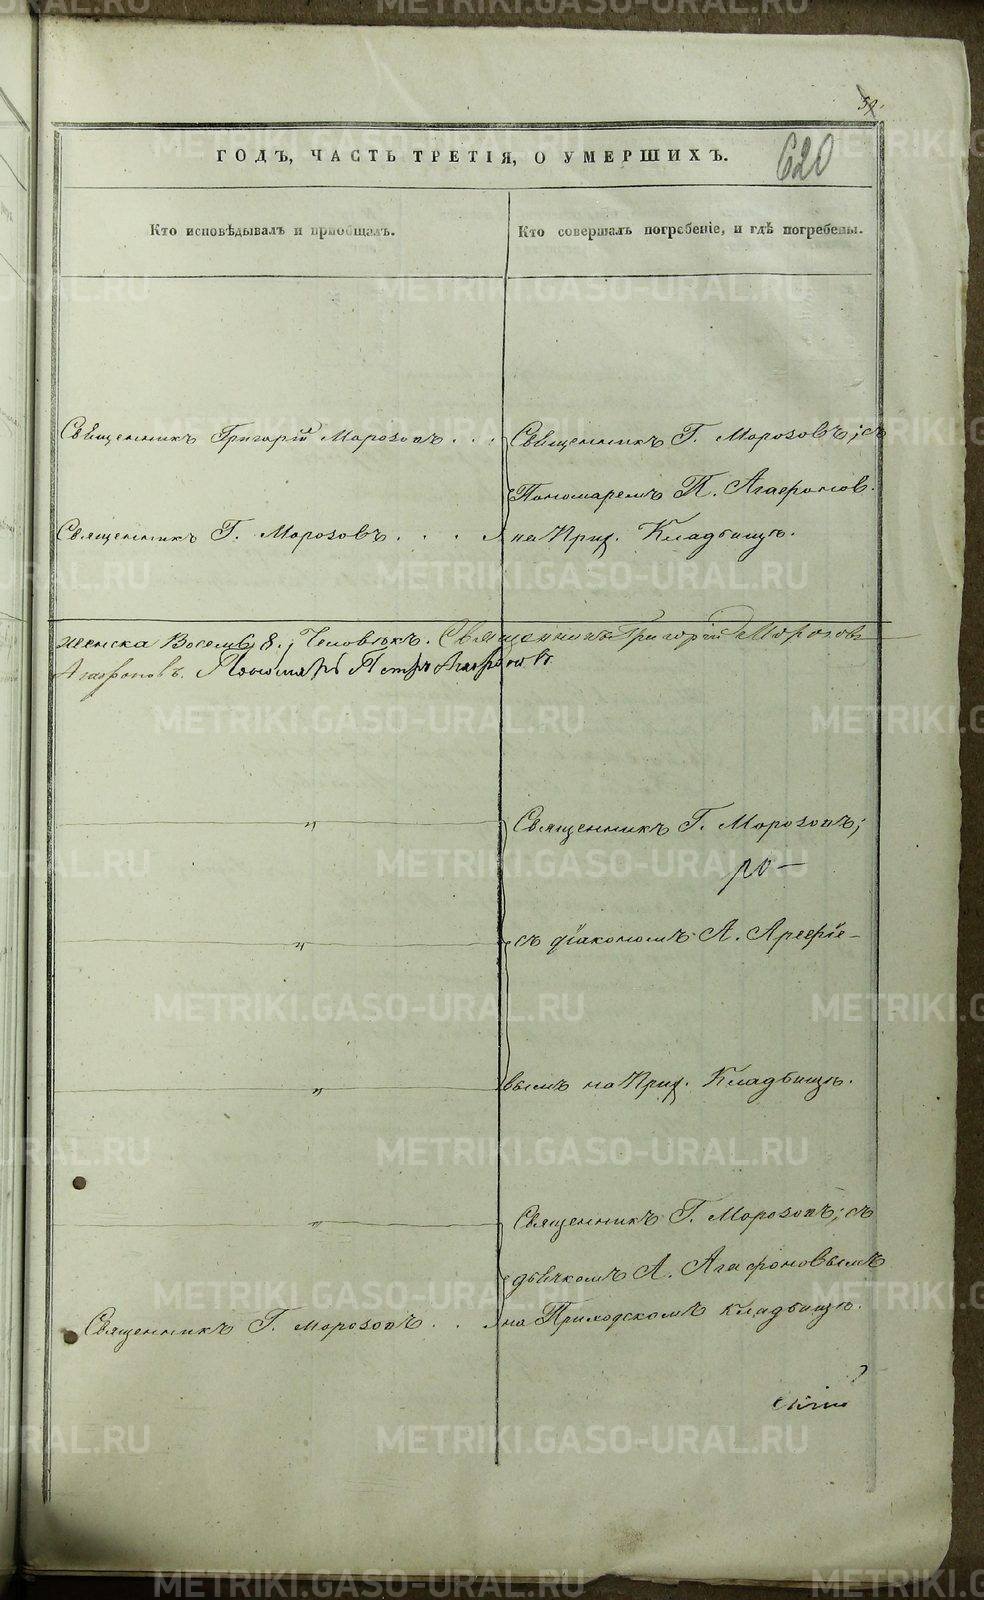 59.
620
ГОДЪ, ЧАСТЬ ТРЕТІЯ, О УМЕРШИХЪ.
Кто исповѣдывалъ и пріобщалъ.
Кто совершалъ погребеніе, и гдѣ погребены.
Священникъ Григорій Морозовъ . . .
Священникъ Г. Морозовъ; съ
Пономаремъ П. Агафонов.
Священникъ Г. Морозовъ . . .
на Прих. Кладбищѣ.
женска Восемь 8., Человѣкъ. Священникъ Григорій Морозовъ
Агафоновъ. Пономарь Петръ Агафоновъ
"
Священникъ Г. Морозовъ;
ро-
"
съ діакономъ А. Арефіе-
"
вымъ на Прих. Кладбищѣ.
"
Священникъ Г. Морозовъ; съ
дьячкомъ А. Агафоновымъ
Священникъ Г. Морозовъ . . .
на Приходскомъ кладбищѣ.
METRIKI.GASO-URAL.RU